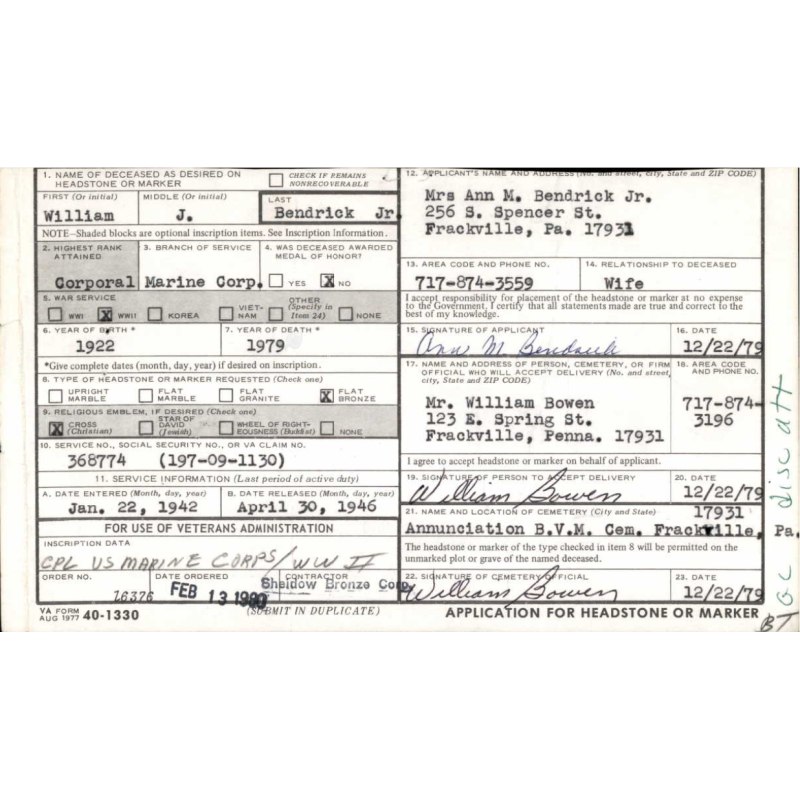 1. NAME OF DECEASED AS DESIRED ON HEADSTONE OR MARKER
CHECK IF REMAINS NONRECOVERABLE
FIRST (Or initial) MIDDLE (Or initial) LAST
William J. Bendrick Jr.
NOTE—Shaded blocks are optional inscription items. See Inscription Information.
2. HIGHEST RANK ATTAINED
Corporal
3. BRANCH OF SERVICE
Marine Corp.
4. WAS DECEASED AWARDED MEDAL OF HONOR?
YES X NO
5. WAR SERVICE
WWI X WWII KOREA VIET-NAM OTHER (Specify in Item 24) NONE
6. YEAR OF BIRTH *
1922
7. YEAR OF DEATH *
1979
*Give complete dates (month, day, year) if desired on inscription.
8. TYPE OF HEADSTONE OR MARKER REQUESTED (Check one)
UPRIGHT MARBLE FLAT MARBLE FLAT GRANITE X FLAT BRONZE
9. RELIGIOUS EMBLEM, IF DESIRED (Check one)
X CROSS (Christian) STAR OF DAVID (Jewish) WHEEL OF RIGHT-EOUSNESS (Buddhist) NONE
10. SERVICE NO., SOCIAL SECURITY NO., OR VA CLAIM NO.
368774 (197-09-1130)
11. SERVICE INFORMATION (Last period of active duty)
A. DATE ENTERED (Month, day, year)
Jan. 22, 1942
B. DATE RELEASED (Month, day, year)
April 30, 1946
FOR USE OF VETERANS ADMINISTRATION
INSCRIPTION DATA
CPL US MARINE CORPS/WW II
ORDER NO.
16376
DATE ORDERED
FEB 13 1980
CONTRACTOR
Sheidow Bronze Corp.
VA FORM AUG 1977 40-1330
(SUBMIT IN DUPLICATE)
12. APPLICANT'S NAME AND ADDRESS (No. and street, city, State and ZIP CODE)
Mrs Ann M. Bendrick Jr.
256 S. Spencer St.
Frackville, Pa. 17931
13. AREA CODE AND PHONE NO.
717-874-3559
14. RELATIONSHIP TO DECEASED
Wife
I accept responsibility for placement of the headstone or marker at no expense
to the Government. I certify that all statements made are true and correct to the
best of my knowledge.
15. SIGNATURE OF APPLICANT
Ann M Bendrick
16. DATE
12/22/79
17. NAME AND ADDRESS OF PERSON, CEMETERY, OR FIRM
OFFICIAL WHO WILL ACCEPT DELIVERY (No. and street,
city, State and ZIP CODE)
Mr. William Bowen
123 E. Spring St.
Frackville, Penna. 17931
18. AREA CODE AND PHONE NO.
717-874-
3196
I agree to accept headstone or marker on behalf of applicant.
19. SIGNATURE OF PERSON TO ACCEPT DELIVERY
William Bowen
20. DATE
12/22/79
21. NAME AND LOCATION OF CEMETERY (City and State)
17931
Annunciation B.V.M. Cem. Frackville, Pa.
The headstone or marker of the type checked in item 8 will be permitted on the
unmarked plot or grave of the named deceased.
22. SIGNATURE OF CEMETERY OFFICIAL
William Bowen
23. DATE
12/22/79
APPLICATION FOR HEADSTONE OR MARKER
BT
GC disc att